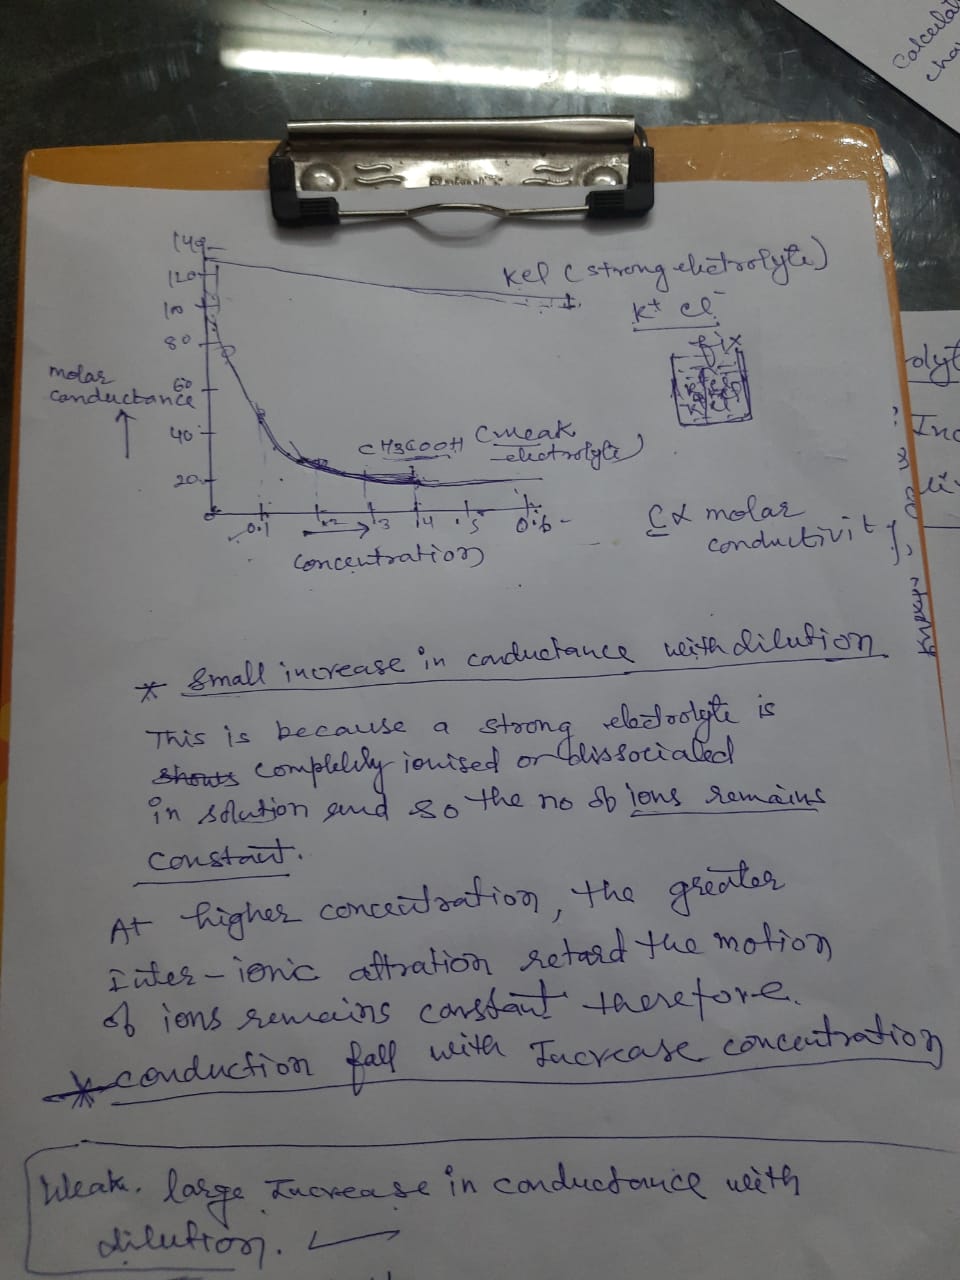 140
120
100
80
60
40
20
0
molar
conductance
0.1
.2
.3
.4
.5
0.6
concentration
KCl (strong eletrolyte)
K+ Cl-
fix
CH3COOH (weak
eletrolyte)
C α molar
conductivity
* Small increase in conductance with dilution
This is because a strong eledrolyte is
shows completely ionised or dissociated
in solution and so the no of ions remains
constant.
At higher concentration, the greater
Inter-ionic attration retard the motion
of ions remains constant therefore.
* conduction fall with Increase concentration
Weak. large Increase in conductance with
dilution.
Calculat
cha
olyt
Inc